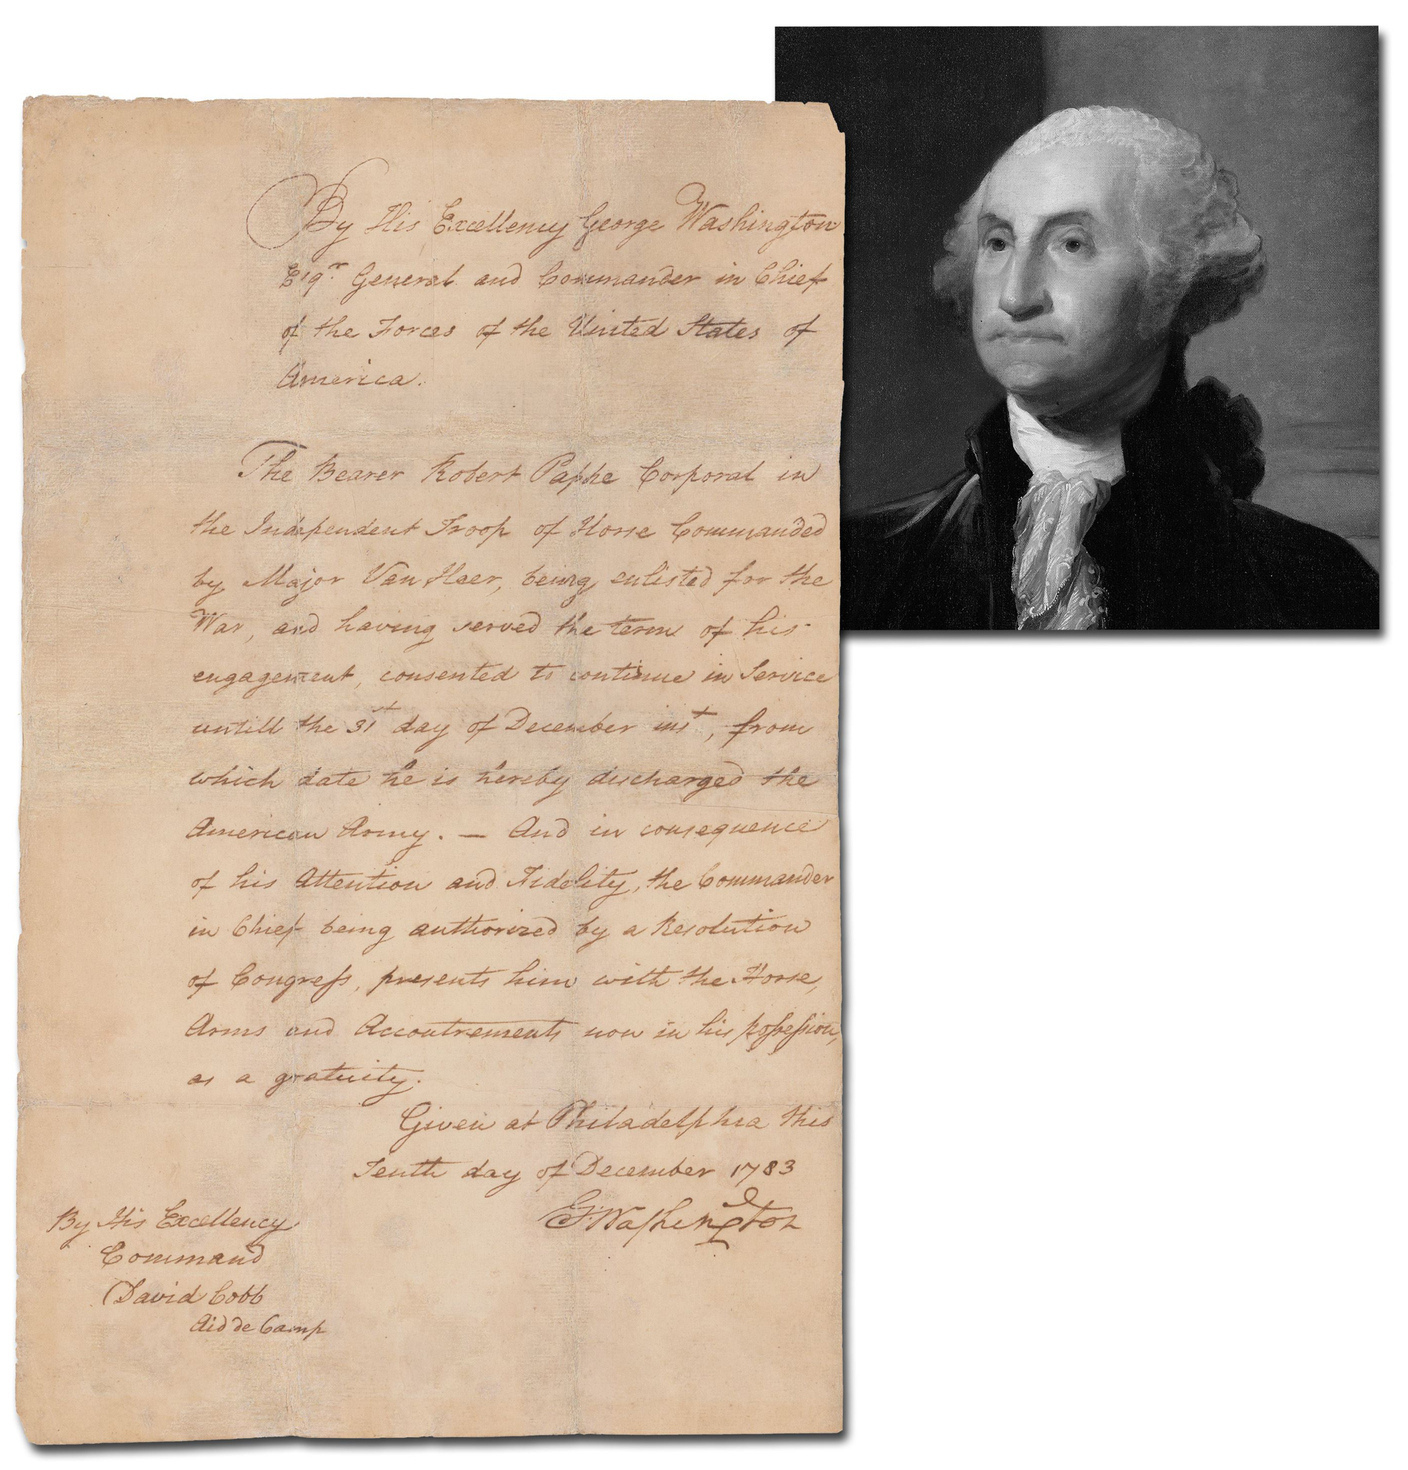 By His Excellency George Washington
Esqr. General and Commander in Chief
of the Forces of the United States of
America.
The Bearer Robert Pappe Corporal in
the Independent Troop of Horse Commanded
by Major Van Heer, being enlisted for the
War, and having served the term of his
engagement, consented to continue in Service
untill the 31st day of December inst, from
which date he is hereby discharged the
American Army. — And in consequence
of his Attention and Fidelity, the Commander
in Chief being authorized by a Resolution
of Congreſs, presents him with the Horse,
Arms and Accoutrements now in his poſseſsion,
as a gratuity.
Given at Philadelphia this
Tenth day of December 1783
G:Waſhington
By His Excellency
Command
David Cobb
Aid de Camp